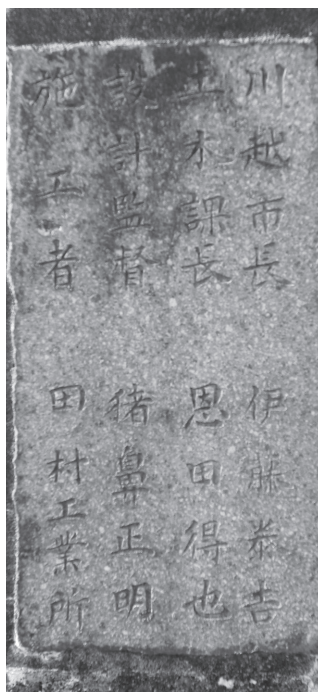 川越市長 伊藤泰吉
土木課長 恩田得也
設計監督 猪鼻正明
施工者 田村工業所